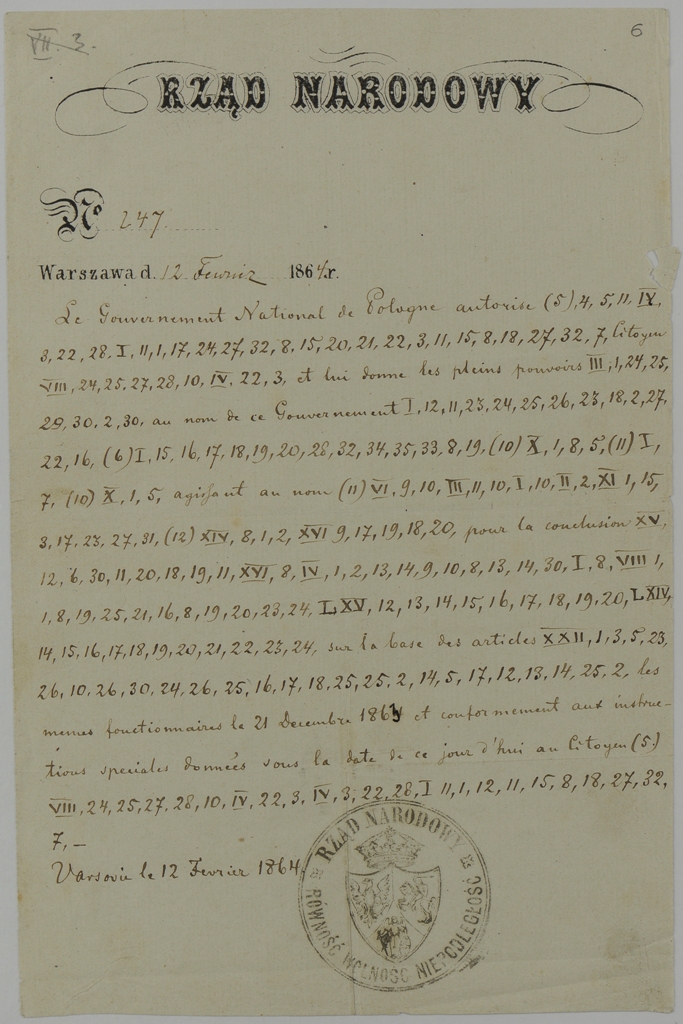 VII. 3.
6
RZĄD NARODOWY
No 247
Warszawa d. 12 Fevrier 1864 r.
Le Gouvernement National de Pologne autorise (5), 4, 5, 11, IV,
3, 22, 28. I, 11, 1, 17, 24, 27, 32, 8, 15, 20, 21, 22, 3, 11, 15, 8, 18, 27, 32, 7, Citoyen
VIII, 24, 25, 27, 28, 10, IV, 22, 3, et lui donne les pleins pouvoirs III, 1, 24, 25,
29, 30, 2, 30, au nom de ce Gouvernement I, 12, 11, 23, 24, 25, 26, 23, 18, 2, 27,
22, 16, (6) I, 15, 16, 17, 18, 19, 20, 28, 32, 34, 35, 33, 8, 19, (10) X, 1, 8, 5, (11) I,
7, (10) X, 1, 5, agissant au nom (11) VI, 9, 10, III, 11, 10, I, 10, II, 2, XI 1, 15,
3, 17, 23, 27, 31, (12) XIV, 8, 1, 2, XVI 9, 17, 19, 18, 20, pour la conclusion XV,
12, 6, 30, 11, 20, 18, 19, 11, XVI, 8, IV, 1, 2, 13, 14, 9, 10, 8, 13, 14, 30, I, 8, VIII 1,
1, 8, 19, 25, 21, 16, 8, 19, 20, 23, 24, LXV, 12, 13, 14, 15, 16, 17, 18, 19, 20, LXIV,
14, 15, 16, 17, 18, 19, 20, 21, 22, 23, 24, sur la base des articles XXII, 1, 3, 5, 23,
26, 10, 26, 30, 24, 26, 25, 16, 17, 18, 25, 25, 2, 14, 5, 17, 12, 13, 14, 25, 2, les
memes fonctionnaires le 21 Decembre 1863 et conformement aux instruc-
tions speciales données sous la date de ce jour d'hui au Citoyen (5)
VIII, 24, 25, 27, 28, 10, IV, 22, 3, IV, 3, 22, 28, I 11, 1, 12, 11, 15, 8, 18, 27, 32,
7, –
Varsovie le 12 Fevrier 1864
RZĄD NARODOWY
RÓWNOŚĆ WOLNOŚĆ NIEPODLEGŁOŚĆ